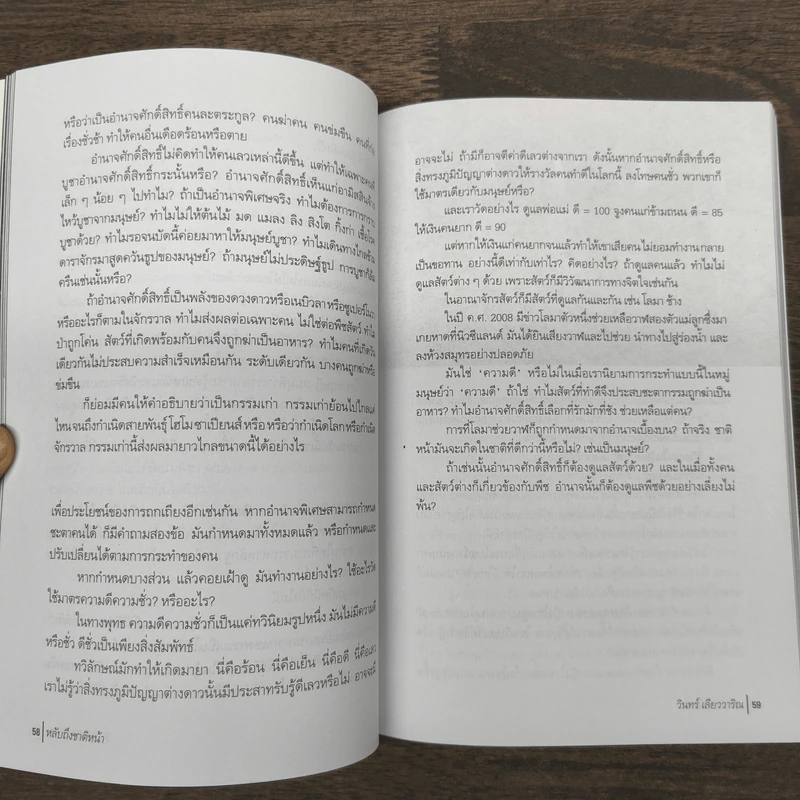 หรือว่าเป็นอำนาจศักดิ์สิทธิ์คนละตระกูล? คนฆ่าคน คนข่มขืน
เรื่องชั่วช้า ทำให้คนอื่นเดือดร้อนหรือตาย
อำนาจศักดิ์สิทธิ์ไม่คิดทำให้คนเลวเหล่านี้ดีขึ้น แต่ทำให้เฉพาะคนที่
บูชาอำนาจศักดิ์สิทธิ์กระนั้นหรือ? อำนาจศักดิ์สิทธิ์เห็นแก่อามิสสินจ้าง
เล็ก ๆ น้อย ๆ ไปทำไม? ถ้าเป็นอำนาจพิเศษจริง ทำไมต้องการการกราบ
ไหว้บูชาจากมนุษย์? ทำไมไม่ให้ต้นไม้ มด แมลง ลิง สิงโต กิ้งก่า เชื้อโรค
บูชาด้วย? ทำไมรอจนบัดนี้ค่อยมาหาให้มนุษย์บูชา? ทำไมเดินทางไกลข้าม
ดาราจักรมาสูดควันธูปของมนุษย์? ถ้ามนุษย์ไม่ประดิษฐ์ธูป การบูชาก็ไม่
ครืนเช่นนั้นหรือ?
ถ้าอำนาจศักดิ์สิทธิ์เป็นพลังของดวงดาวหรือเนบิวลาหรือซูเปอร์โนวา
หรืออะไรก็ตามในจักรวาล ทำไมส่งผลต่อเฉพาะคน ไม่ใช่ต่อพืชสัตว์ ทำไม
ป่าถูกโค่น สัตว์ที่เกิดพร้อมกับคนจึงถูกฆ่าเป็นอาหาร? ทำไมคนที่เกิดวัน
เดียวกันไม่ประสบความสำเร็จเหมือนกัน ระดับเดียวกัน บางคนถูกฆ่าหรือ
ข่มขืน
ก็ย่อมมีคนให้คำอธิบายว่าเป็นกรรมเก่า กรรมเก่าย้อนไปไกลแค่
ไหนจนถึงกำเนิดสายพันธุ์โฮโมซาเปียนส์หรือ หรือว่ากำเนิดโลกหรือกำเนิด
จักรวาล กรรมเก่านี้ส่งผลมายาวไกลขนาดนี้ได้อย่างไร
เพื่อประโยชน์ของการถกเถียงอีกเช่นกัน หากอำนาจพิเศษสามารถกำหนด
ชะตาคนได้ ก็มีคำถามสองข้อ มันกำหนดมาทั้งหมดแล้ว หรือกำหนดและ
ปรับเปลี่ยนได้ตามการกระทำของคน
หากกำหนดบางส่วน แล้วคอยเฝ้าดู มันทำงานอย่างไร? ใช้อะไรวัด
ใช้มาตรความดีความชั่ว? หรืออะไร?
ในทางพุทธ ความดีความชั่วก็เป็นแค่ทวินิยมรูปหนึ่ง มันไม่มีความดี
หรือชั่ว ดีชั่วเป็นเพียงสิ่งสัมพัทธ์
ทวิลักษณ์มักทำให้เกิดมายา นี่คือร้อน นี่คือเย็น นี่คือดี นี่คือเลว
เราไม่รู้ว่าสิ่งทรงภูมิปัญญาต่างดาวนั้นมีประสาทรับรู้ดีเลวหรือไม่ อาจจะมี
58 หลับถึงชาติหน้า
อาจจะไม่ ถ้ามีก็อาจตีค่าดีเลวต่างจากเรา ดังนั้นหากอำนาจศักดิ์สิทธิ์หรือ
สิ่งทรงภูมิปัญญาต่างดาวให้รางวัลคนทำดีในโลกนี้ ลงโทษคนชั่ว พวกเขาก็
ใช้มาตรเดียวกับมนุษย์หรือ?
และเราวัดอย่างไร ดูแลพ่อแม่ ดี = 100 จูงคนแก่ข้ามถนน ดี = 85
ให้เงินคนยาก ดี = 90
แต่หากให้เงินแก่คนยากจนแล้วทำให้เขาเสียคน ไม่ยอมทำงาน กลาย
เป็นขอทาน อย่างนี้ดีเท่ากับเท่าไร? คิดอย่างไร? ถ้าดูแลคนแล้ว ทำไมไม่
ดูแลสัตว์ต่าง ๆ ด้วย เพราะสัตว์ก็มีวิวัฒนาการทางจิตใจเช่นกัน
ในอาณาจักรสัตว์ก็มีสัตว์ที่ดูแลกันและกัน เช่น โลมา ช้าง
ในปี ค.ศ. 2008 มีข่าวโลมาตัวหนึ่งช่วยเหลือวาฬสองตัวแม่ลูกซึ่งมา
เกยหาดที่นิวซีแลนด์ มันได้ยินเสียงวาฬและไปช่วย นำทางไปสู่ร่องน้ำ และ
ลงห้วงสมุทรอย่างปลอดภัย
มันใช่ ‘ความดี’ หรือไม่ในเมื่อเรานิยามการกระทำแบบนี้ในหมู่
มนุษย์ว่า ‘ความดี’ ถ้าใช่ ทำไมสัตว์ที่ทำดีจึงประสบชะตากรรมถูกฆ่าเป็น
อาหาร? ทำไมอำนาจศักดิ์สิทธิ์เลือกที่รักมักที่ชัง ช่วยเหลือแต่คน?
การที่โลมาช่วยวาฬก็ถูกกำหนดมาจากอำนาจเบื้องบน? ถ้าจริง ชาติ
หน้ามันจะเกิดในชาติที่ดีกว่านี้หรือไม่? เช่นเป็นมนุษย์?
ถ้าเช่นนั้นอำนาจศักดิ์สิทธิ์ก็ต้องดูแลสัตว์ด้วย? และในเมื่อทั้งคน
และสัตว์ต่างก็เกี่ยวข้องกับพืช อำนาจนั้นก็ต้องดูแลพืชด้วยอย่างเลี่ยงไม่
พ้น?
วินทร์ เลียววาริณ 59